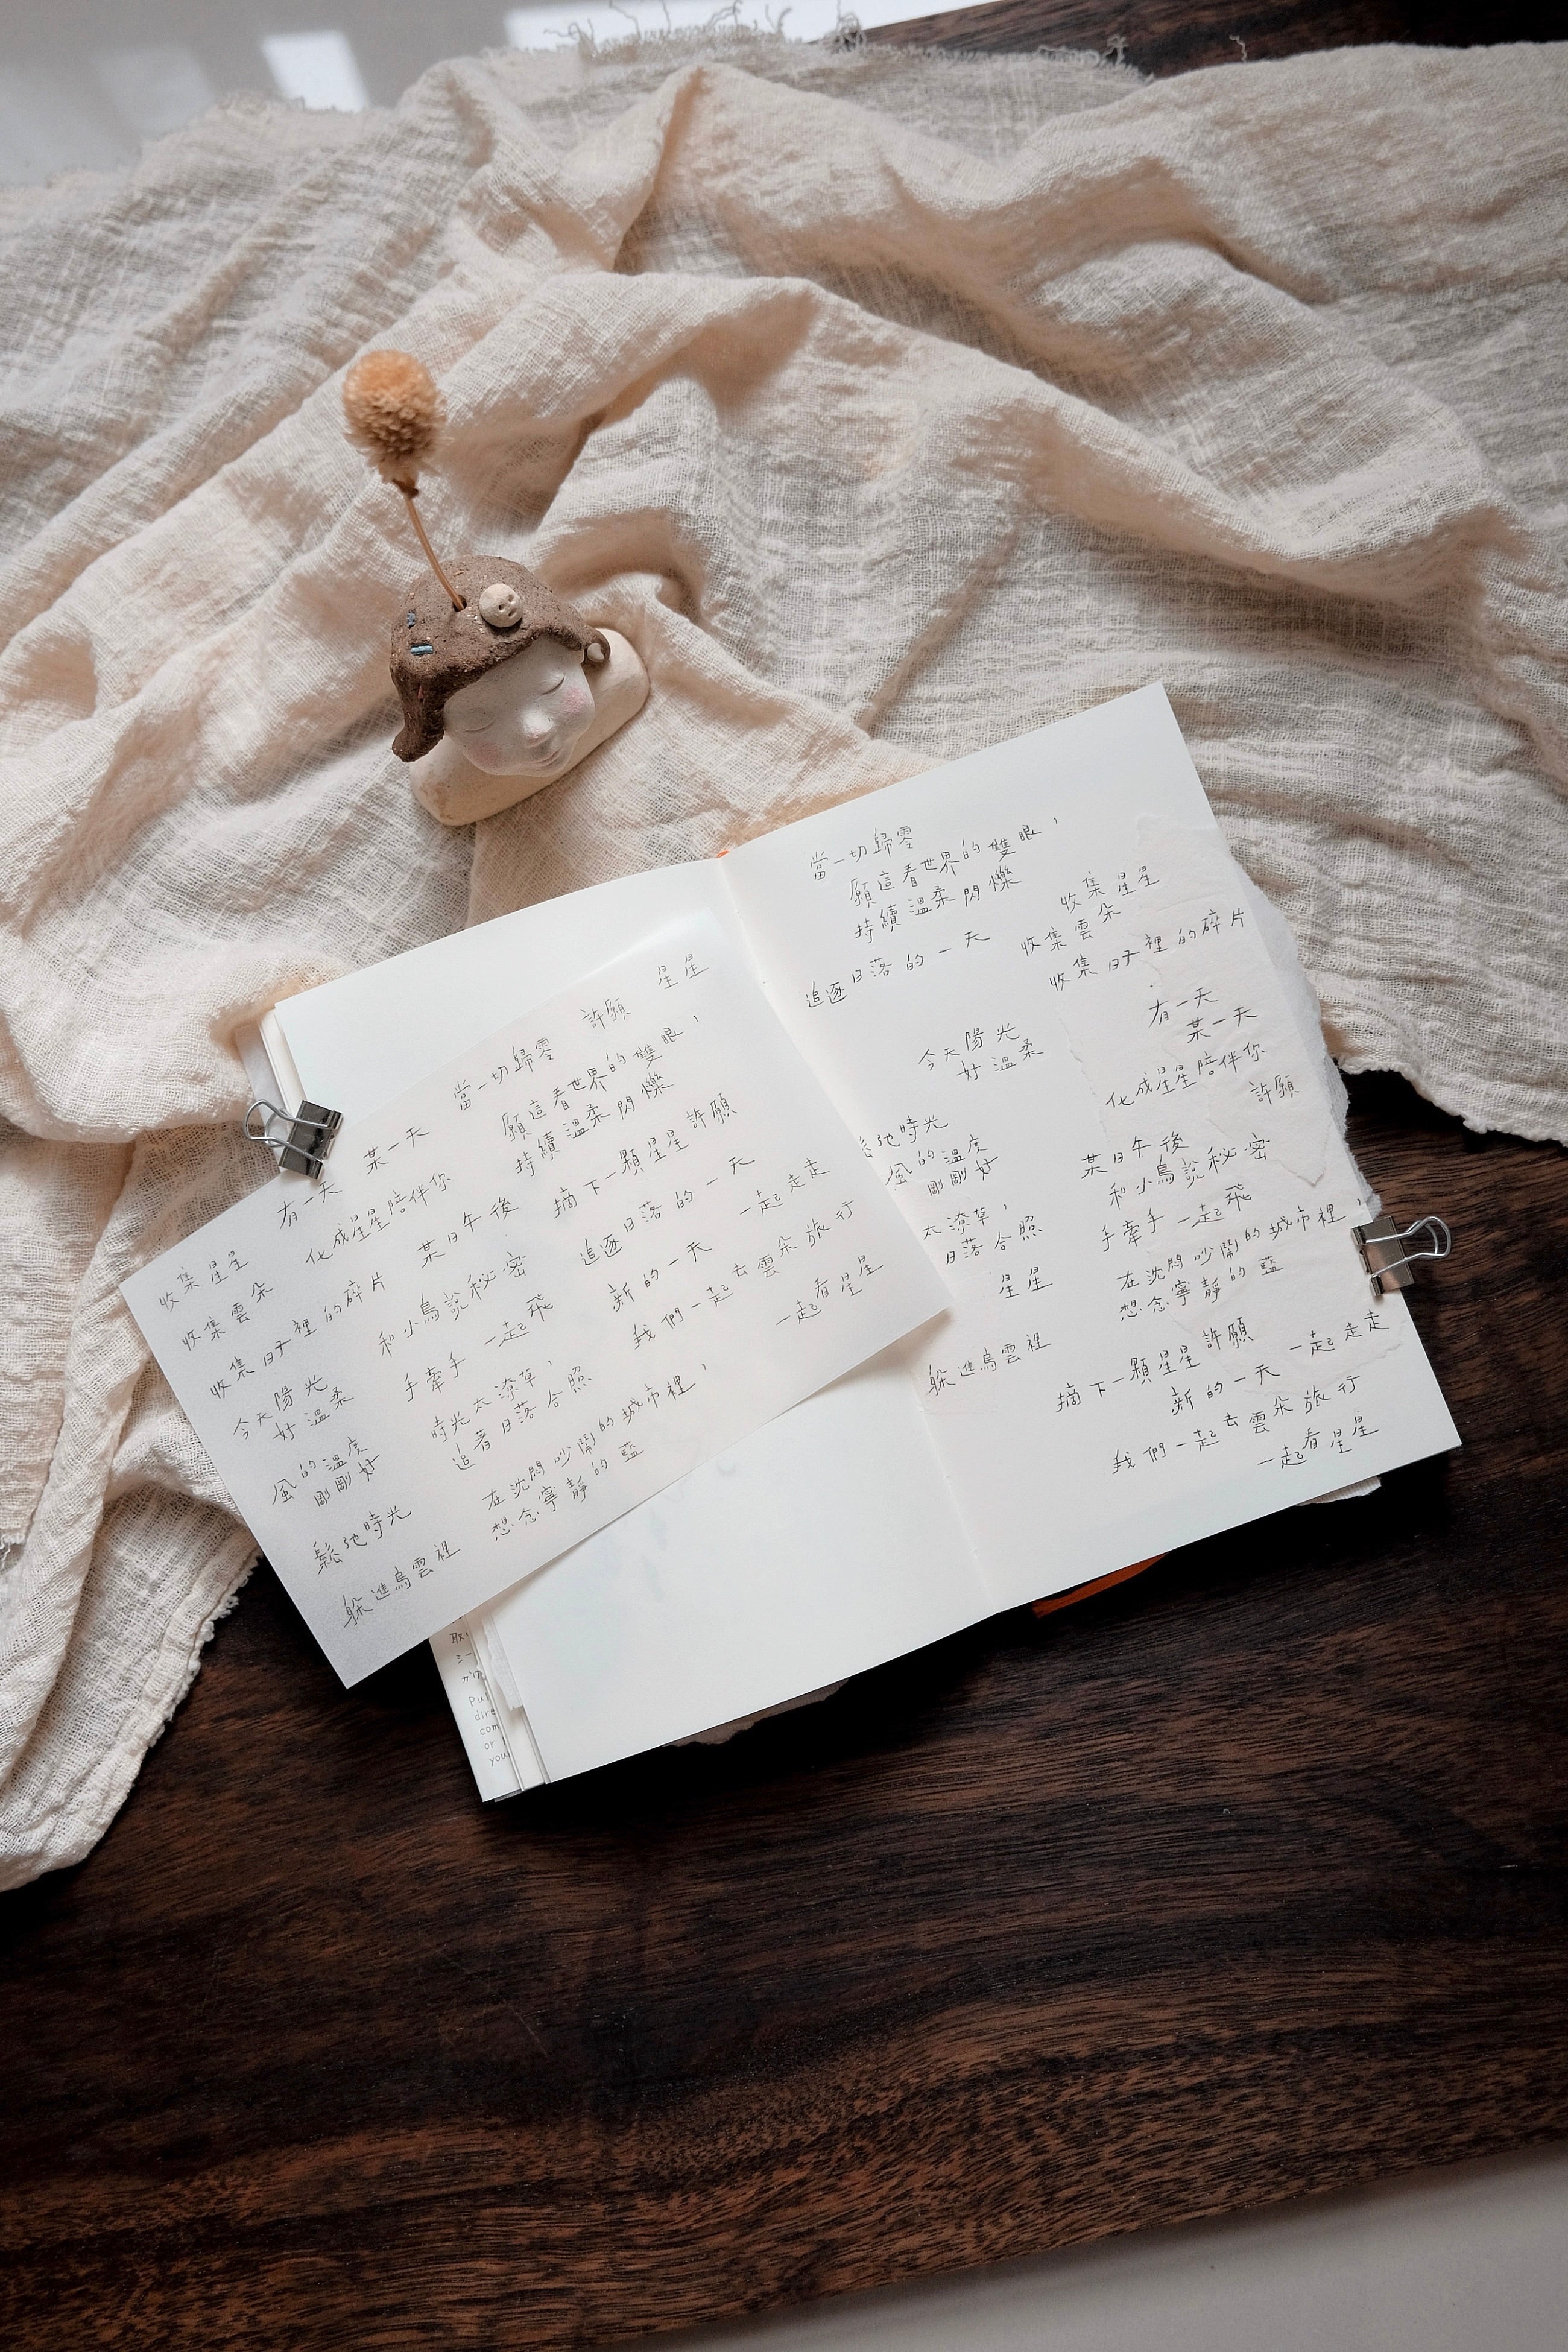 星星
許願
當一切歸零
願這看世界的雙眼，
持續溫柔閃爍
有一天
某一天
化成星星陪伴你
摘下一顆星星許願
收集星星
收集雲朵
收集日子裡的碎片
某日午後
和小鳥說秘密
手牽手一起飛
追逐日落的一天
一起走走
新的一天
我們一起去雲朵旅行
一起看星星
今天陽光
好溫柔
時光太潦草，
追著日落合照
風的溫度
剛剛好
在沈悶吵鬧的城市裡，
想念寧靜的藍
鬆弛時光
躲進烏雲裡
當一切歸零
願這看世界的雙眼，
持續溫柔閃爍
追逐日落的一天
收集星星
收集雲朵
收集日子裡的碎片
今天陽光
好溫柔
有一天
某一天
化成星星陪伴你
許願
弛時光
風的溫度
剛剛好
某日午後
和小鳥說秘密
手牽手一起飛
太潦草，
日落合照
星星
在沈悶吵鬧的城市裡，
想念寧靜的藍
躲進烏雲裡
摘下一顆星星許願
一起走走
新的一天
我們一起去雲朵旅行
一起看星星
取
ミー
かけ
Pu
dire
com
or
you